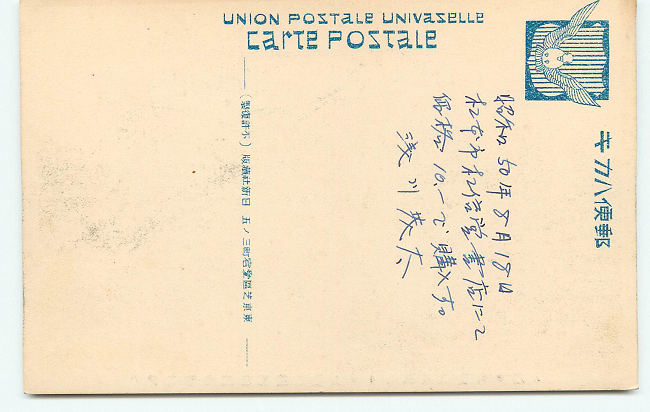 UNION POSTALE UNIVERSELLE
CARTE POSTALE
郵便ハガキ
昭和50年8月18日
松本市 書店にて
価格 10.- で購入する。
浅川
東京芝區愛宕町三ノ五 日新社繪版（不許複製）